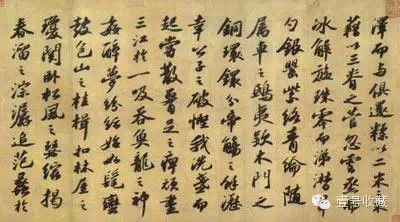 澤而与俱還糅以二米之禾
藉以三脊之菅忽雲烝而
冰解旋珠零而涕潸翠
勺銀罌紫絡青綸隨
属車之鴟夷款木門之
銅鐶分帝觴之餘瀝
幸公子之破慳我洗盞而
起嘗散腰足之痹頑盡
三江於一吸吞魚龍之神
姦醉夢紛紜始如髦蠻
鼓包山之桂楫扣林屋之
瓊關卧松風之瑟縮揭
春溜之淙潺追范蠡於
壹号收藏